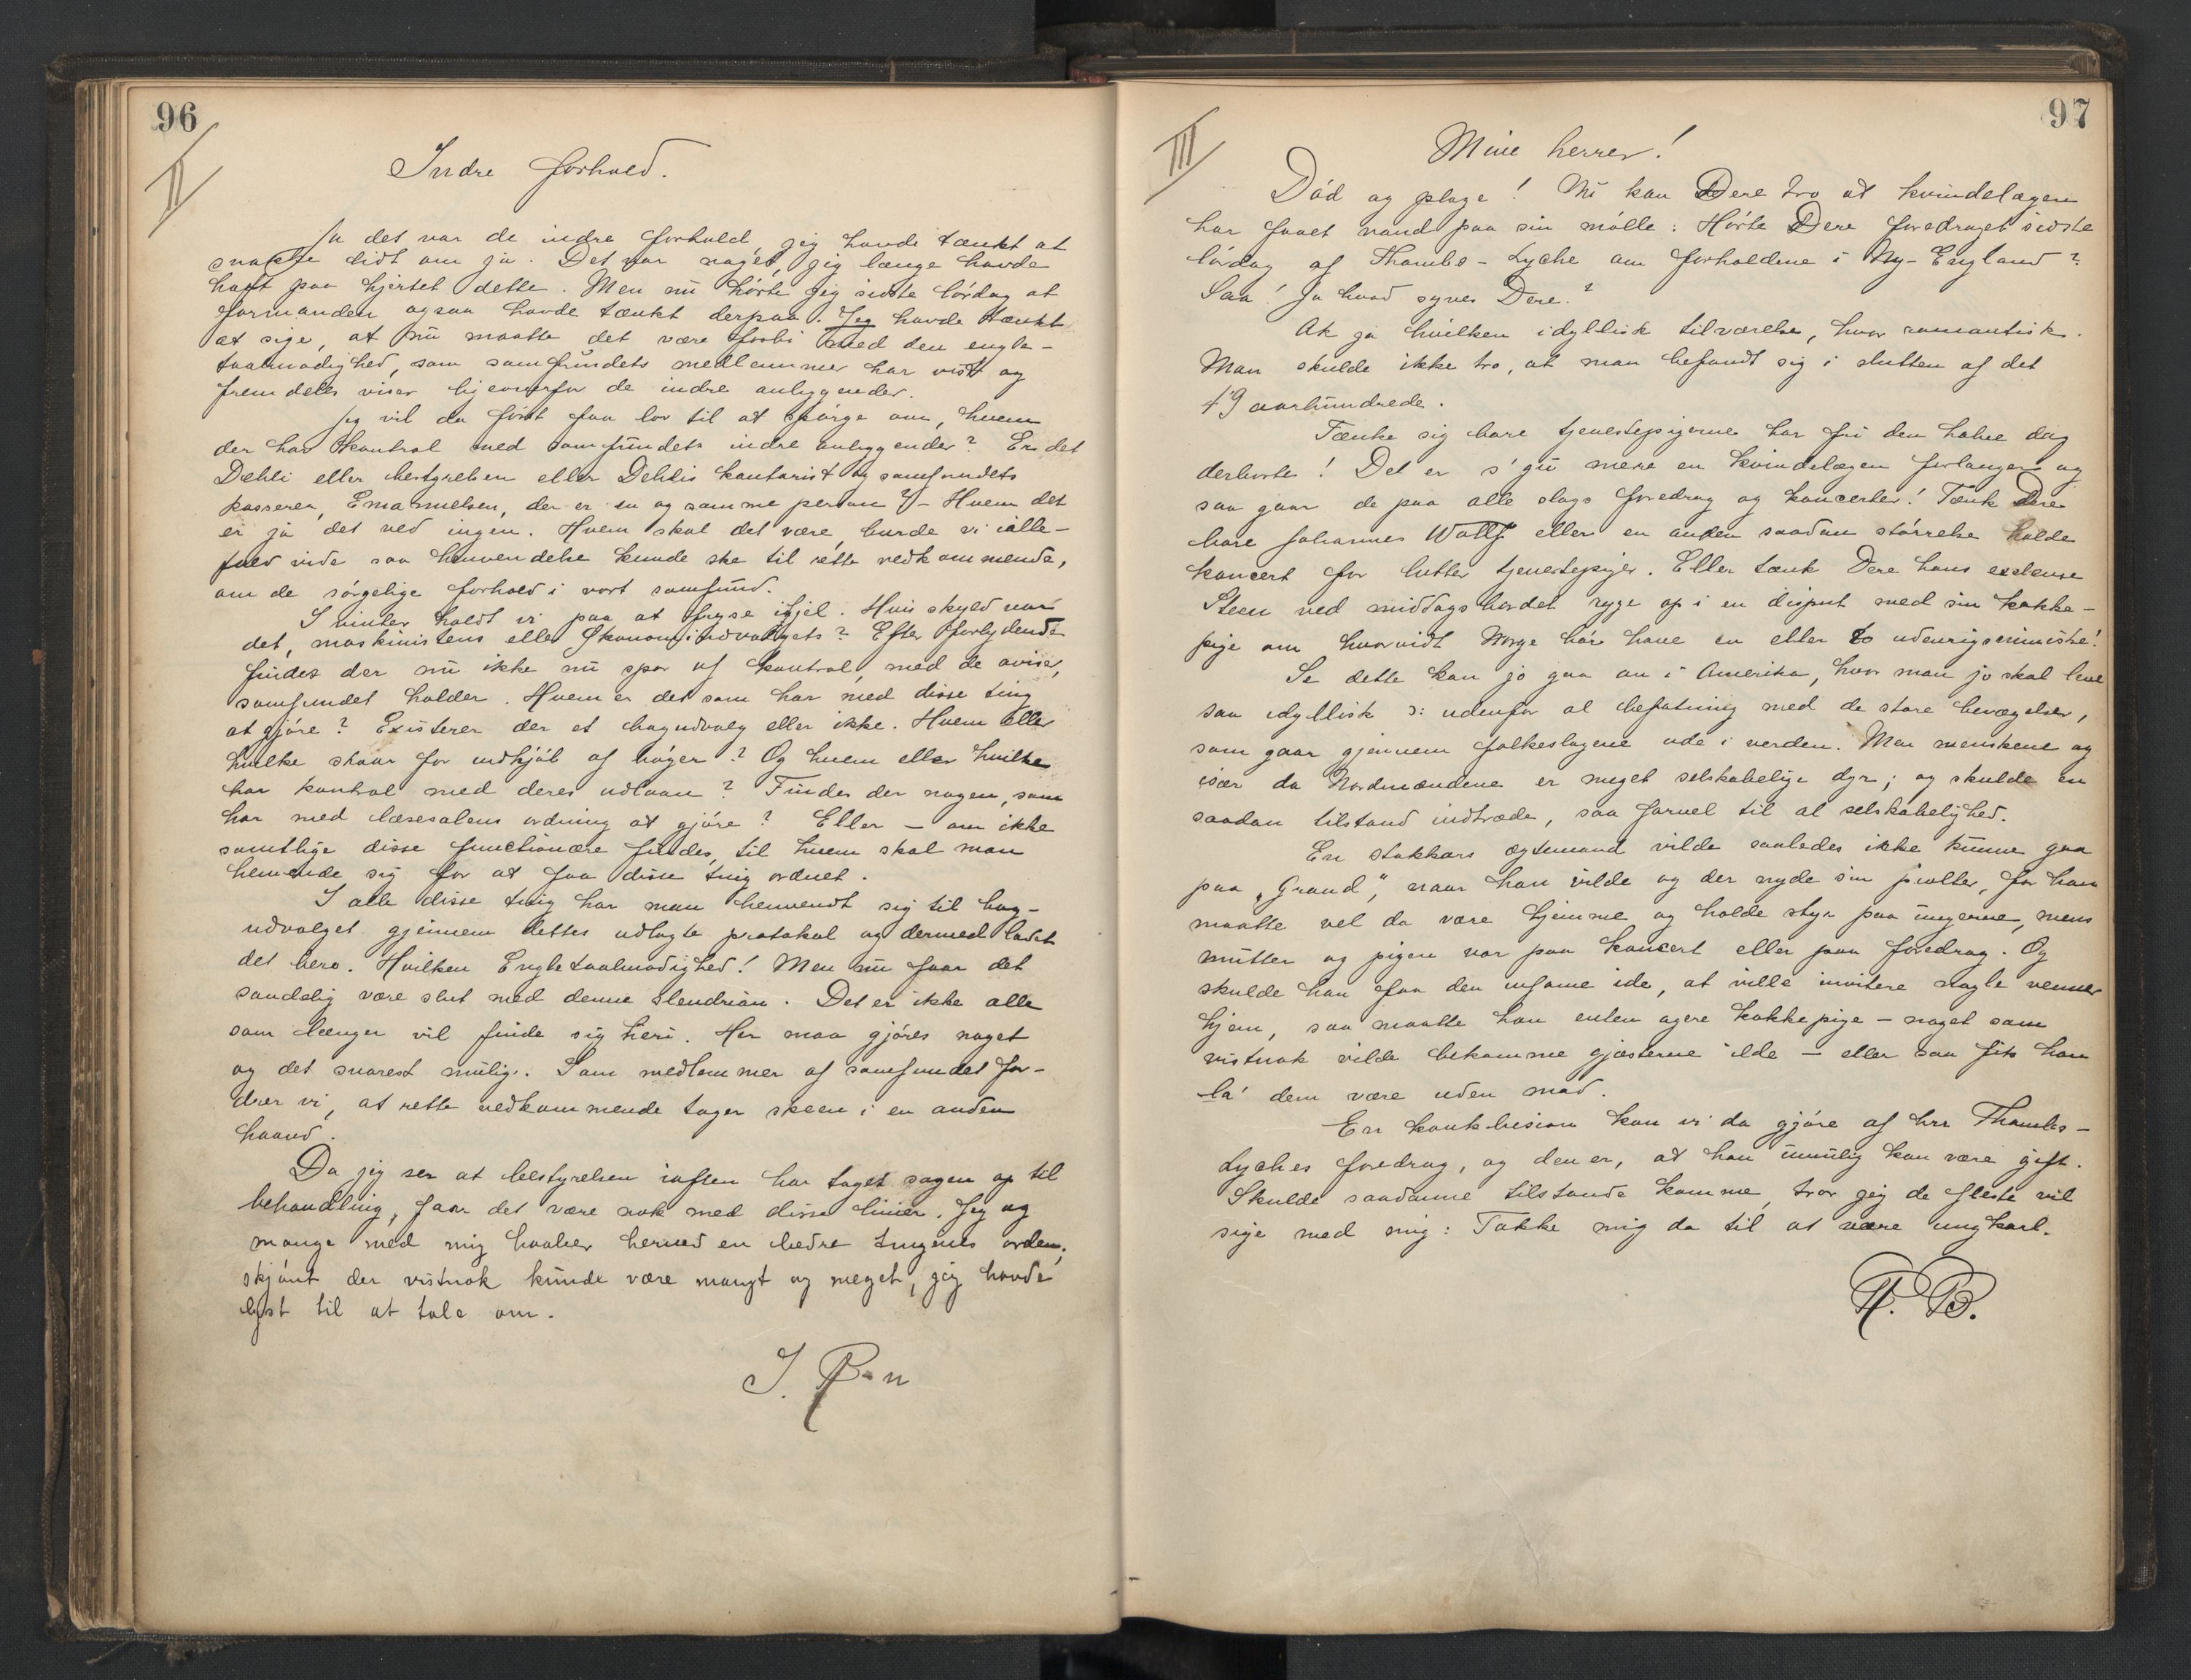 96
II
Indre forhold.
Ja det var de indre forhold, jeg havde tænkt at
snakke lidt om ja. Det var noget, jeg længe havde
havt paa hjertet dette. Men nu hørte jeg sidste lørdag at
formanden ogsaa havde tænkt derpaa. Jeg havde tænkt
at sige, at nu maatte det være forbi med den engle-
taalmodighed, som samfundets medlemmer har vist og
fremdeles viser ligeoverfor de indre anliggender.
Jeg vil da først faa lov til at spørge om, hvem
der har kontrol med samfundets indre anliggender? Er det
Dehli eller bestyrelsen eller Dehlis kontorist og samfundets
kasserer, Emanuelsen, der er en og samme person? - Hvem det
er ja det ved ingen. Hvem skal det være, burde vi ialle-
fald vide saa henvendelse kunde ske til rette vedkommende,
om de sørgelige forhold i vort samfund.
I vinter holdt vi paa at fryse ihjel. Hvis skyld var
det, maskinistens eller Økonomiudvalgets? Efter forlydende
findes der nu ikke nu spor af kontrol, med de aviser,
samfundet holder. Hvem er det som har med disse ting
at gjøre? Existerer der et bogudvalg eller ikke. Hvem eller
hvilke staar for indkjøb af bøger? Og hvem eller hvilke
har kontrol med deres udlaan? Findes der nogen, som
har med læsesalens ordning at gjøre? Eller — om ikke
samtlige disse functionære findes, til hvem skal man
henvende sig for at faa disse ting ordnet.
I alle disse ting har man henvendt sig til bog-
udvalget gjennem dettes udlagte protokol og dermed ladet
det bero. Hvilken Engletaalmodighed! Men nu faar det
sandelig være slut med denne slendrian. Det er ikke alle
som længer vil finde sig heri. Her maa gjøres noget
og det snarest mulig. Som medlemmer af samfundet for-
drer vi, at rette vedkommende tager skeen i en anden
haand.
Da jeg ser at bestyrelsen iaften har taget sagen op til
behandling, faar det være nok med disse linier. Jeg og
mange med mig haaber herved en bedre tingenes orden,
skjønt der vistnok kunde være mangt og meget, jeg havde
lyst til at tale om.
J. R-n
97
III
Mine herrer!
Død og plage! Nu kan Dere tro at kvindelagen
har faaet vand paa sin mølle: Hørte Dere foredraget sidste
lørdag af Thambs-Lyche om forholdene i Ny-England?
Saa! Ja hvad synes Dere?
Ak ja hvilken idyllisk tilværelse, hvor romantisk.
Man skulde ikke tro, at man befandt sig i slutten af det
19 aarhundrede.
Tænke sig bare tjenestepigerne har fri den halve dag
derborte! Det er s'gu mere en kvindelagen forlanger og
saa gaar de paa alle slags foredrag og koncerter! Tænk Dere
bare Johannes Wolff eller en anden saadan størrelse holde
koncert for lutter tjenestepiger. Eller tænk Dere hans exelense
Steen ved middagsbordet ryge op i en disput med sin kokke-
pige om hvorvidt Norge bør have en eller to udenrigsministre!
Se dette kan jo gaa an i Amerika, hvor man jo skal leve
saa idyllisk ɔ: udenfor al befatning med de store bevægelser,
som gaar gjennem folkeslagene ude i verden. Men menskene og
især da Nordmændene er meget selskabelige dyr; og skulde en
saadan tilstand indtræde, saa farvel til al selskabelighed.
En stakkars ægtemand vilde saaledes ikke kunne gaa
paa „Grand", naar han vilde og der nyde sin pjolter, for han
maatte vel da være hjemme og holde styr paa ungerne, mens
mutter og pigen var paa koncert eller paa foredrag. Og
skulde han faa den infame ide, at ville invitere nogle venner
hjem, saa maatte han enten agere kokkepige — noget som
vistnok vilde bekomme gjæsterne ilde — eller saa fik han
la' dem være uden mad.
En konklusion kan vi da gjøre af hrr Thambs-
Lyches foredrag, og den er, at han umulig kan være gift.
Skulde saadanne tilstande komme, tror jeg de fleste vil
sige med mig: Takke mig da til at være ungkarl.
R. B.